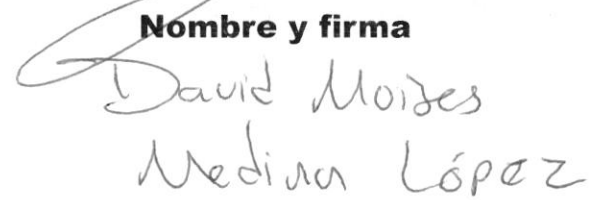 Nombre y firma
David Moises
Medina López